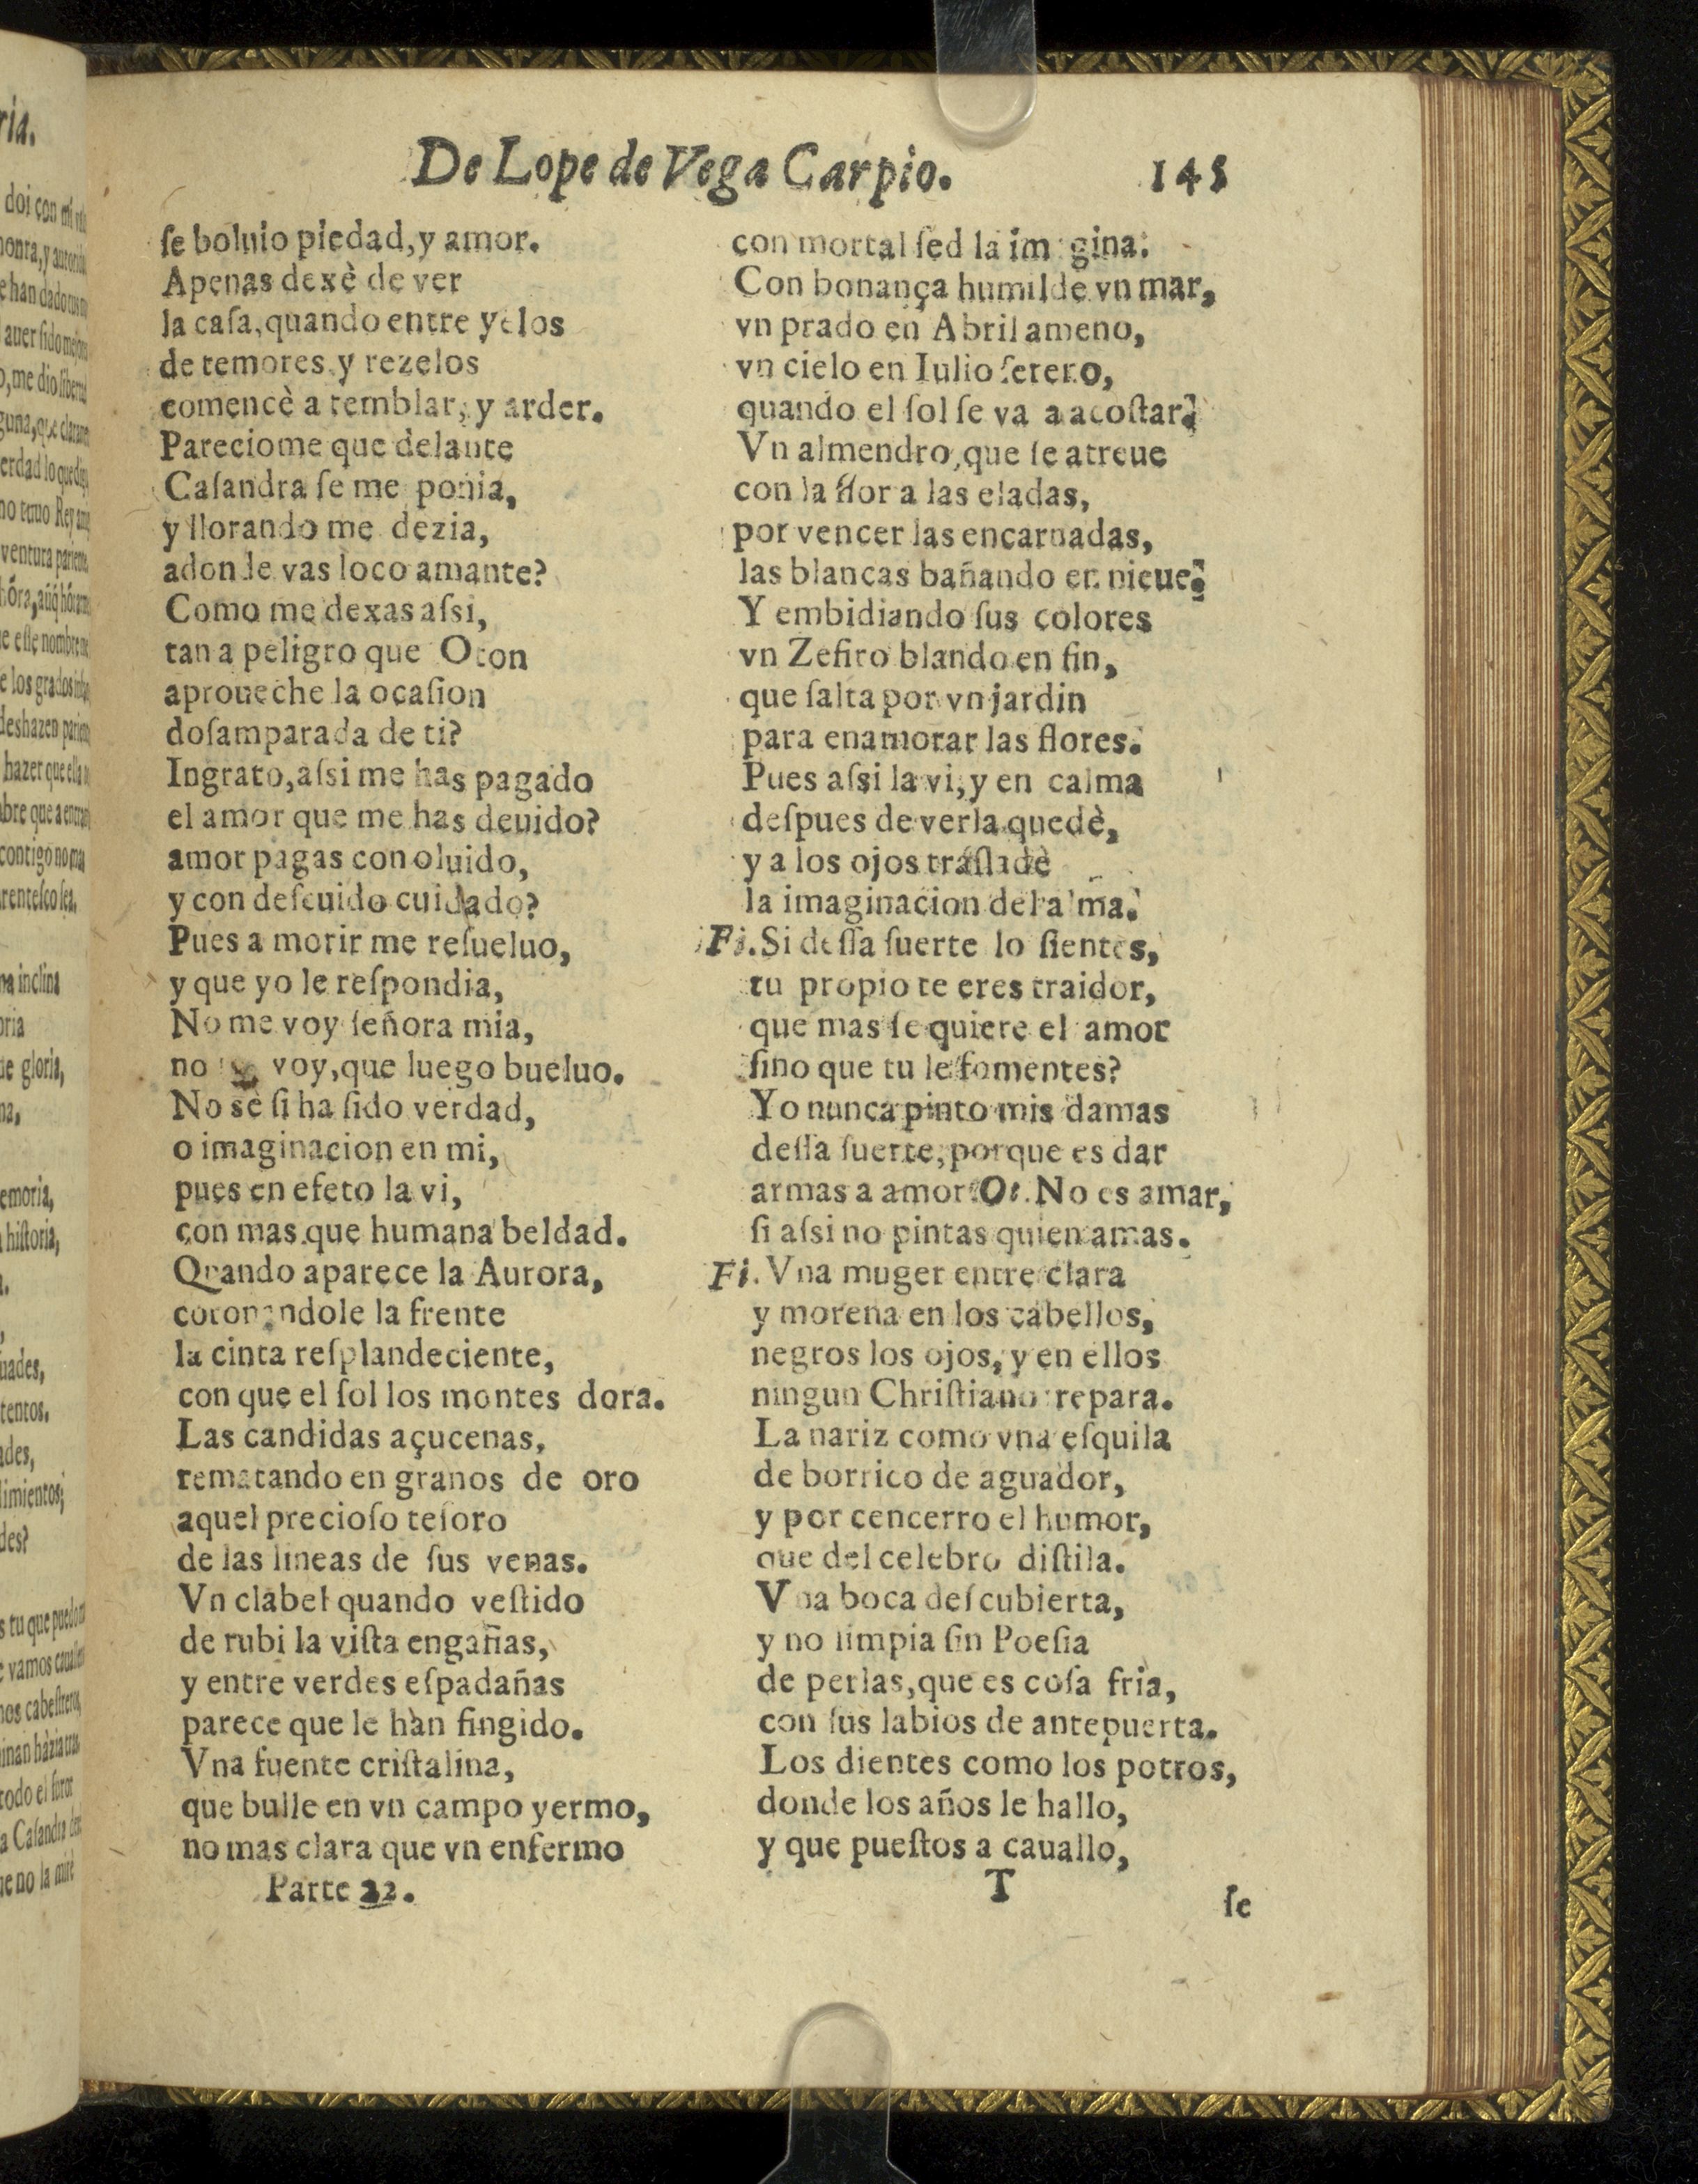 De Lope de Vega Carpio. 145
ſe boluio piedad, y amor.
Apenas dexè de ver
la caſa, quando entre yelos
de temores, y rezelos
comencè a temblar, y arder.
Pareciome que delante
Caſandra ſe me ponia,
y llorando me dezia,
adonde vas loco amante?
Como me dexas aſsi,
tan a peligro que Oton
aproueche la ocaſion
doſamparada de ti?
Ingrato, aſsi me has pagado
el amor que me has deuido?
amor pagas con oluido,
y con deſcuido cuidado?
Pues a morir me reſueluo,
y que yo le reſpondia,
No me voy ſeñora mia,
no voy, que luego bueluo.
No sè ſi ha ſido verdad,
o imaginacion en mi,
pues en efeto la vi,
con mas que humana beldad.
Quando aparece la Aurora,
coronandole la frente
la cinta reſplandeciente,
con que el ſol los montes dora.
Las candidas açucenas,
rematando en granos de oro
aquel precioſo teſoro
de las lineas de ſus venas.
Vn clabel quando veſtido
de rubi la viſta engañas,
y entre verdes eſpadañas
parece que le han fingido.
Vna fuente criſtalina,
que bulle en vn campo yermo,
no mas clara que vn enfermo
Parte 22.
con mortal ſed la imagina.
Con bonança humilde vn mar,
vn prado en Abril ameno,
vn cielo en Iulio ſereno,
quando el ſol ſe va a acoſtar.
Vn almendro, que ſe atreue
con la flor a las eladas,
por vencer las encarnadas,
las blancas bañando en nieue.
Y embidiando ſus colores
vn Zefiro blando en fin,
que ſalta por vn jardin
para enamorar las flores.
Pues aſsi la vi, y en calma
deſpues de verla quedè,
y a los ojos traſladè
la imaginacion del alma.
Fi. Si deſſa ſuerte lo ſientes,
tu propio te eres traidor,
que mas ſe quiere el amor
ſino que tu le fomentes?
Yo nunca pinto mis damas
deſſa ſuerte, porque es dar
armas a amor. Ot. No es amar,
ſi aſsi no pintas quien amas.
Fi. Vna muger entre clara
y morena en los cabellos,
negros los ojos, y en ellos
ningun Chriſtiano repara.
La nariz como vna eſquila
de borrico de aguador,
y por cencerro el humor,
que del celebro diſtila.
Vna boca deſcubierta,
y no limpia ſin Poeſia
de perlas, que es coſa fria,
con ſus labios de antepuerta.
Los dientes como los potros,
donde los años le hallo,
y que pueſtos a cauallo,
T
ſe